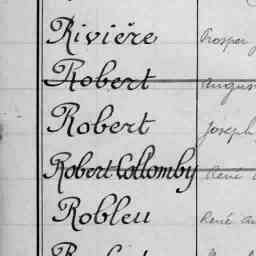 Rivière Prosper
Robert August
Robert Joseph
Robert Collomby René
Robleu René Au